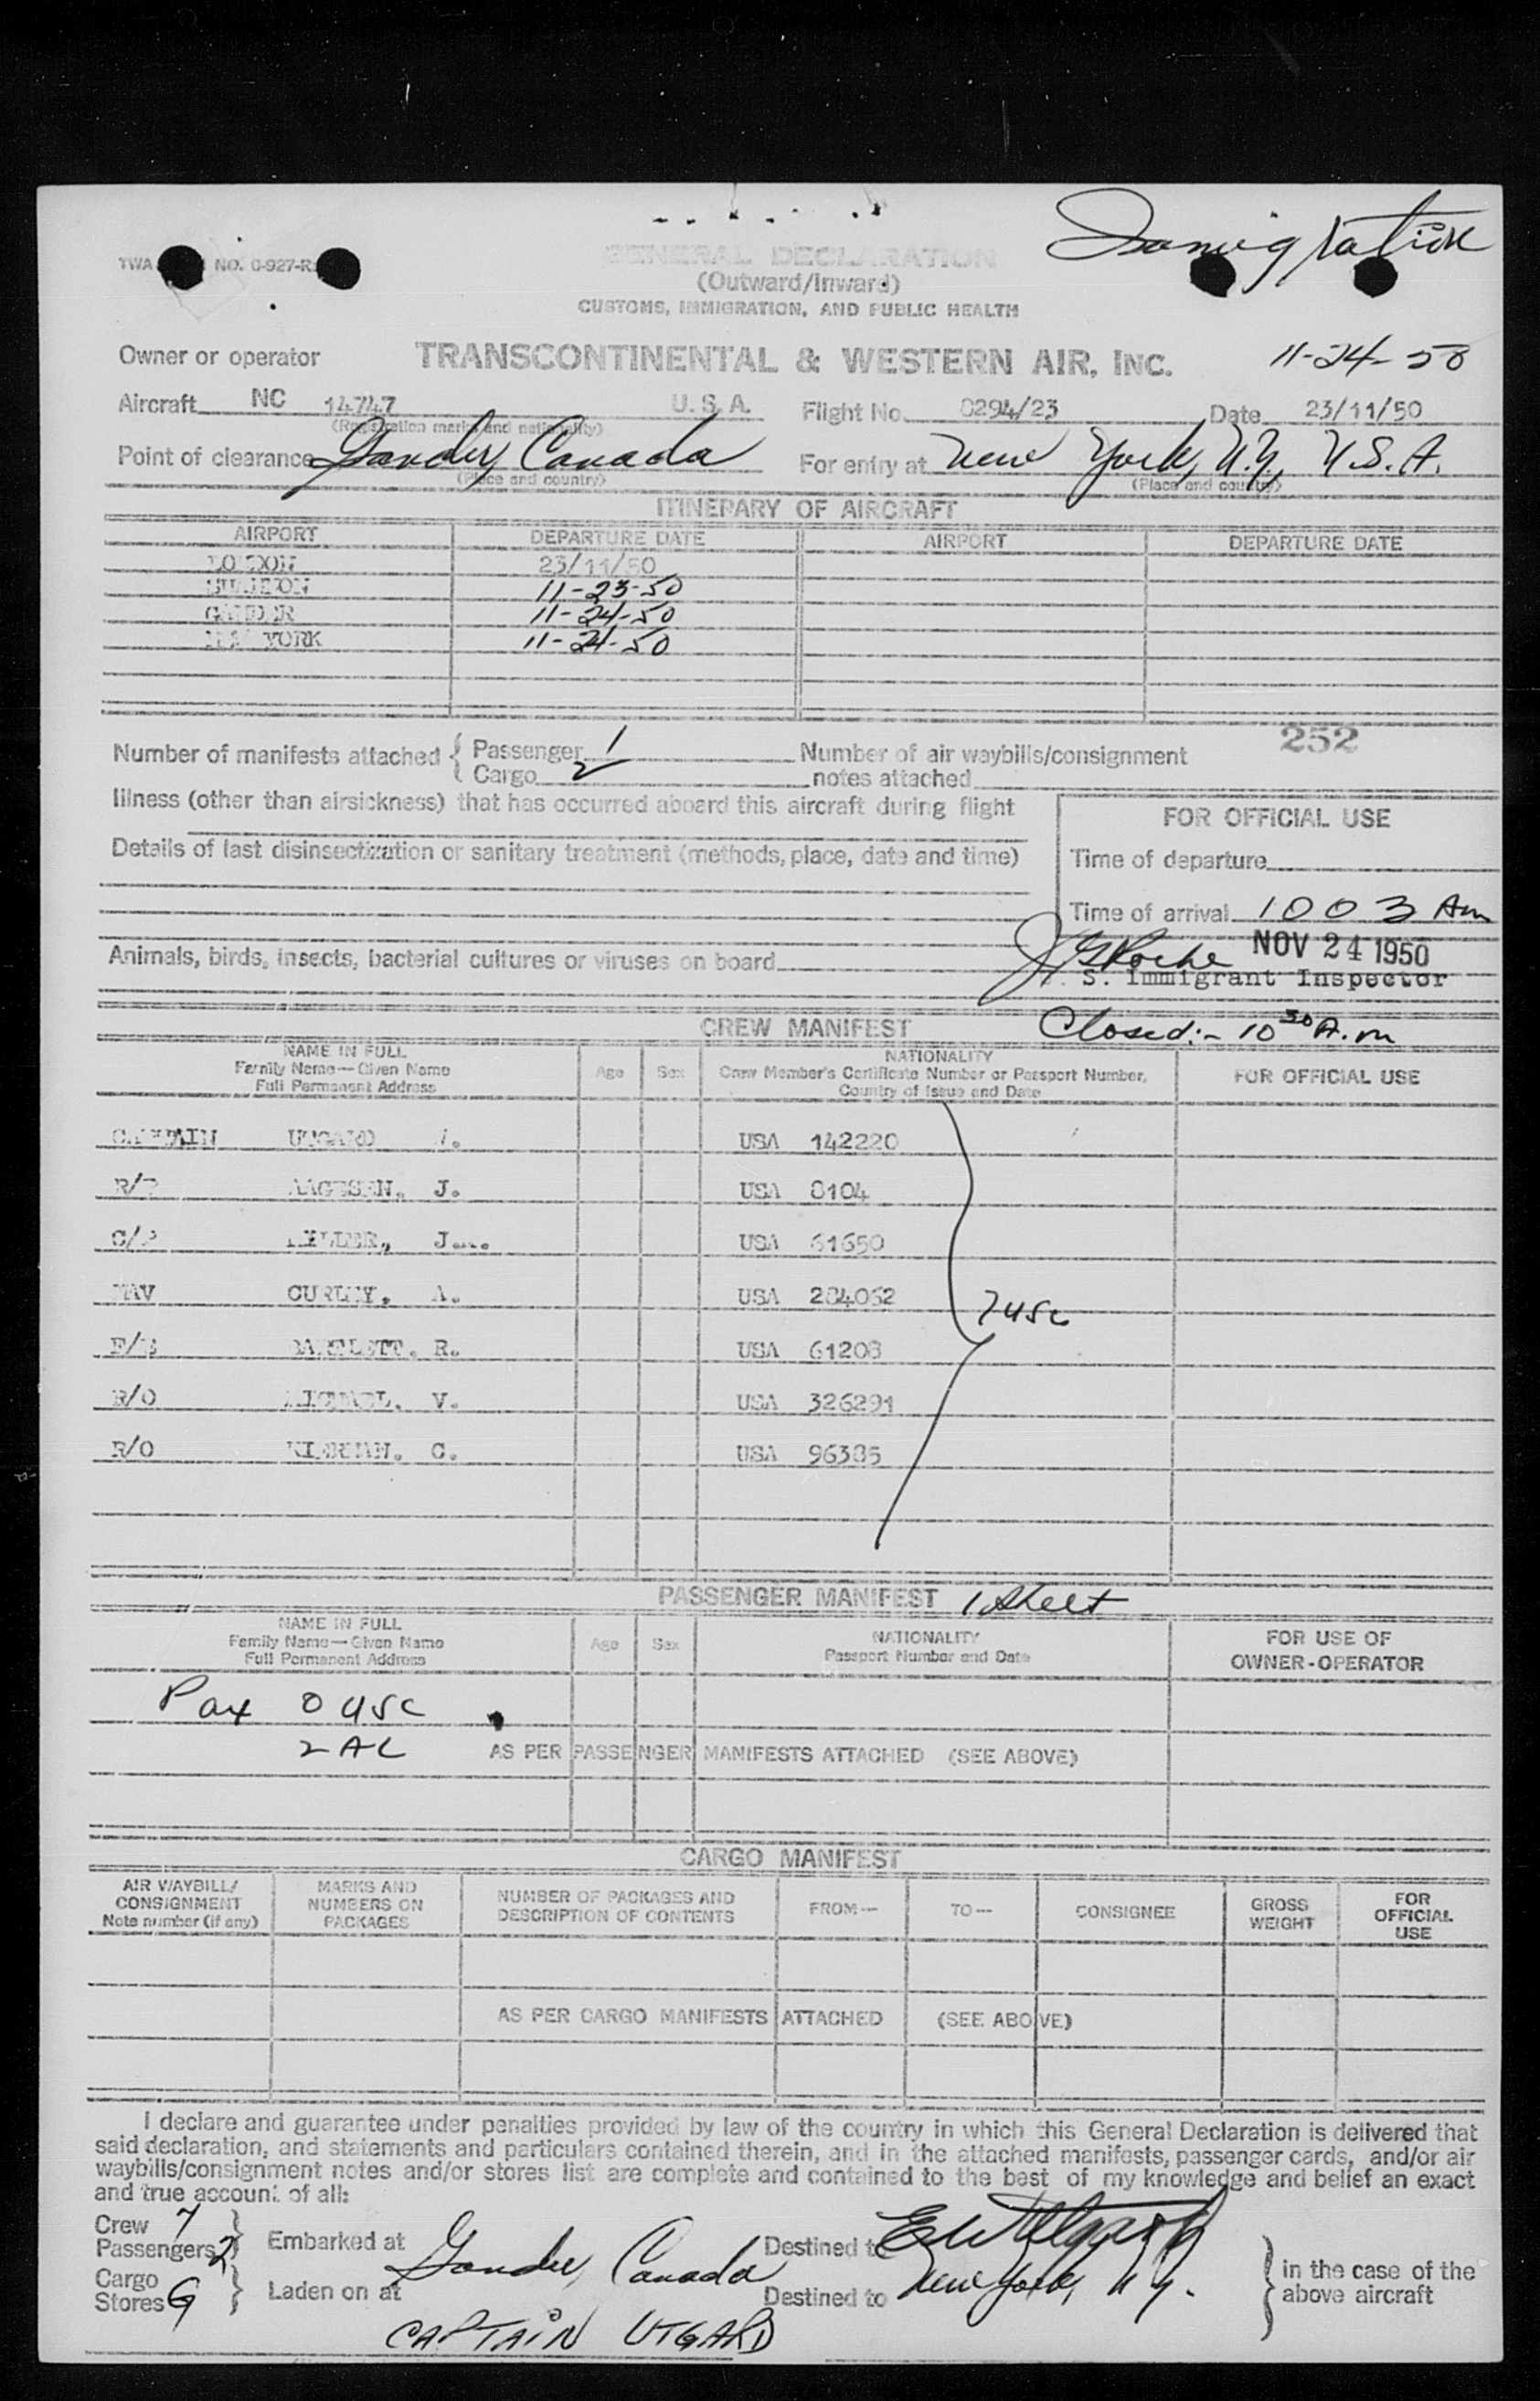 Immigration
TWA NO. 0-927-R
GENERAL DECLARATION
(Outward/Inward)
CUSTOMS, IMMIGRATION, AND PUBLIC HEALTH
Owner or operator TRANSCONTINENTAL & WESTERN AIR, INC. 11-24-50
Aircraft NC 14747 U.S.A. Flight No. 0294/23 Date 23/11/50
(Registration marks and nationality)
Point of clearance Gander, Canada For entry at New York, N.Y, U.S.A.
(Place and country) (Place and country)
ITINERARY OF AIRCRAFT
AIRPORT DEPARTURE DATE AIRPORT DEPARTURE DATE
LONDON 23/11/50
11-23-50
GANDER 11-24-50
NEW YORK 11-24-50
252
Number of manifests attached { Passenger 1 Number of air waybills/consignment
Cargo 2 notes attached
Illness (other than airsickness) that has occurred aboard this aircraft during flight
FOR OFFICIAL USE
Details of last disinsectization or sanitary treatment (methods, place, date and time)
Time of departure
Time of arrival 1003 Am
NOV 24 1950
Animals, birds, insects, bacterial cultures or viruses on board
S. Immigrant Inspector
CREW MANIFEST Closed:- 10 30 A.m
NAME IN FULL
Family Name—Given Name
Full Permanent Address
Age Sex
NATIONALITY
Crew Member's Certificate Number or Passport Number,
Country of Issue and Date
FOR OFFICIAL USE
CAPTAIN USA 142220
AAGESEN, J. USA 8104
USA 61650
NAV CURLEY, A. USA 284062
7 USC
BARTLETT, R. USA 61208
R/O V. USA 326291
R/O C. USA 96385
PASSENGER MANIFEST 1 Sheet
NAME IN FULL
Family Name—Given Name
Full Permanent Address
Age Sex
NATIONALITY
Passport Number and Date
FOR USE OF
OWNER-OPERATOR
Pax 0 USC
2 AL AS PER PASSENGER MANIFESTS ATTACHED (SEE ABOVE)
CARGO MANIFEST
AIR WAYBILL/
CONSIGNMENT
Note number (if any)
MARKS AND
NUMBERS ON
PACKAGES
NUMBER OF PACKAGES AND
DESCRIPTION OF CONTENTS
FROM—
TO—
CONSIGNEE
GROSS
WEIGHT
FOR
OFFICIAL
USE
AS PER CARGO MANIFESTS ATTACHED (SEE ABOVE)
I declare and guarantee under penalties provided by law of the country in which this General Declaration is delivered that
said declaration, and statements and particulars contained therein, and in the attached manifests, passenger cards, and/or air
waybills/consignment notes and/or stores list are complete and contained to the best of my knowledge and belief an exact
and true account of all:
Crew 7
Passengers 2 } Embarked at Gander, Canada Destined to
Cargo
Stores } Laden on at Destined to New York, N.Y. } in the case of the
above aircraft
CAPTAIN UTGARD